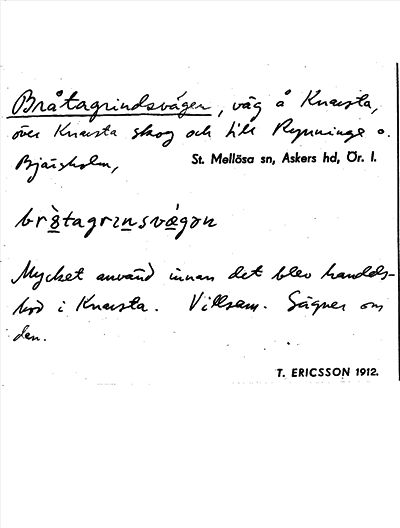 Bråtagrindsvägen, väg å Knavsta,
över Knavsta skog och till Rynninge o.
Bjärsholm,
St. Mellösa sn, Askers hd, Ör. l.
brò̱tagrin̠svä̱́gən
Mycket använd innan det blev handels-
bod i Knavsta. Villsam. Sägner om
den.
T. ERICSSON 1912.